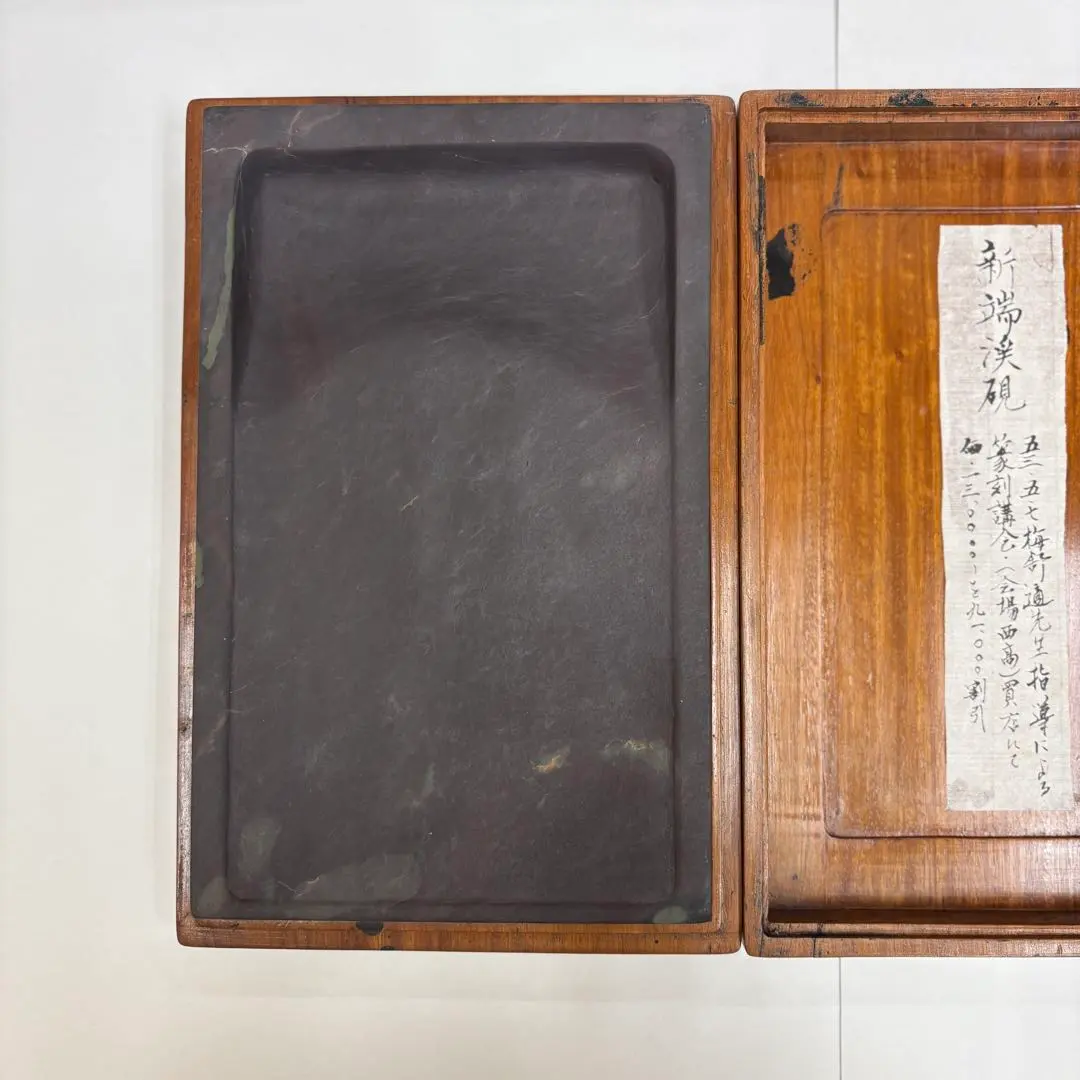 新端渓硯
五三.五.七梅舒適先生指導による
篆刻講会.(会場西高)買店にて
価.一三〇.〇〇〇ーを九一.〇〇〇割引